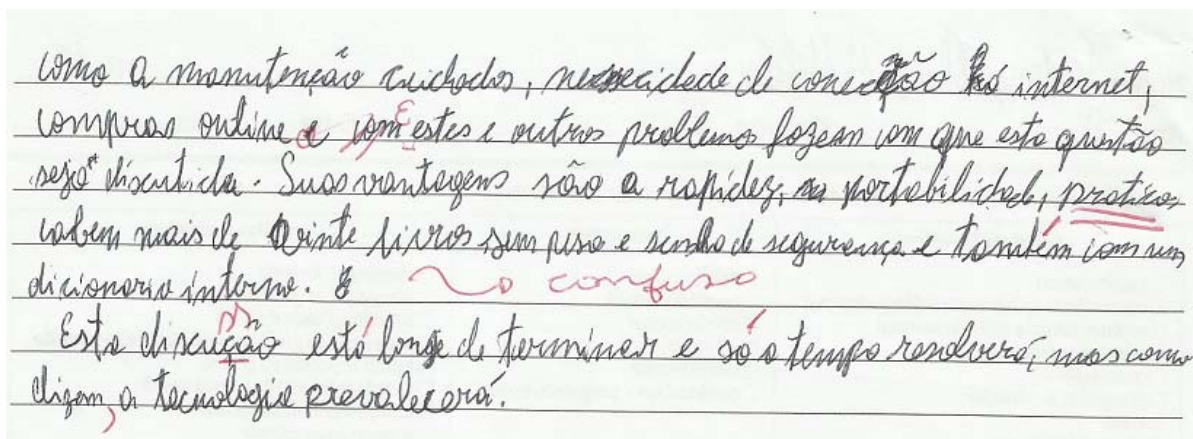 como a manutenção cuidados, necessecidade de conecção há internet,
compras online e com estes e outros problemas fazem com que esta questão
seja discutida. Suas vantagens são a rapidez, a portabilidade, praticos,
cabem mais de vinte livros, sem peso e senha de segurança e também com um
dicionario interno. confuso
Esta discução está longe de terminar e só o tempo resolverá, mas como
dizem, a tecnologia prevalecerá.